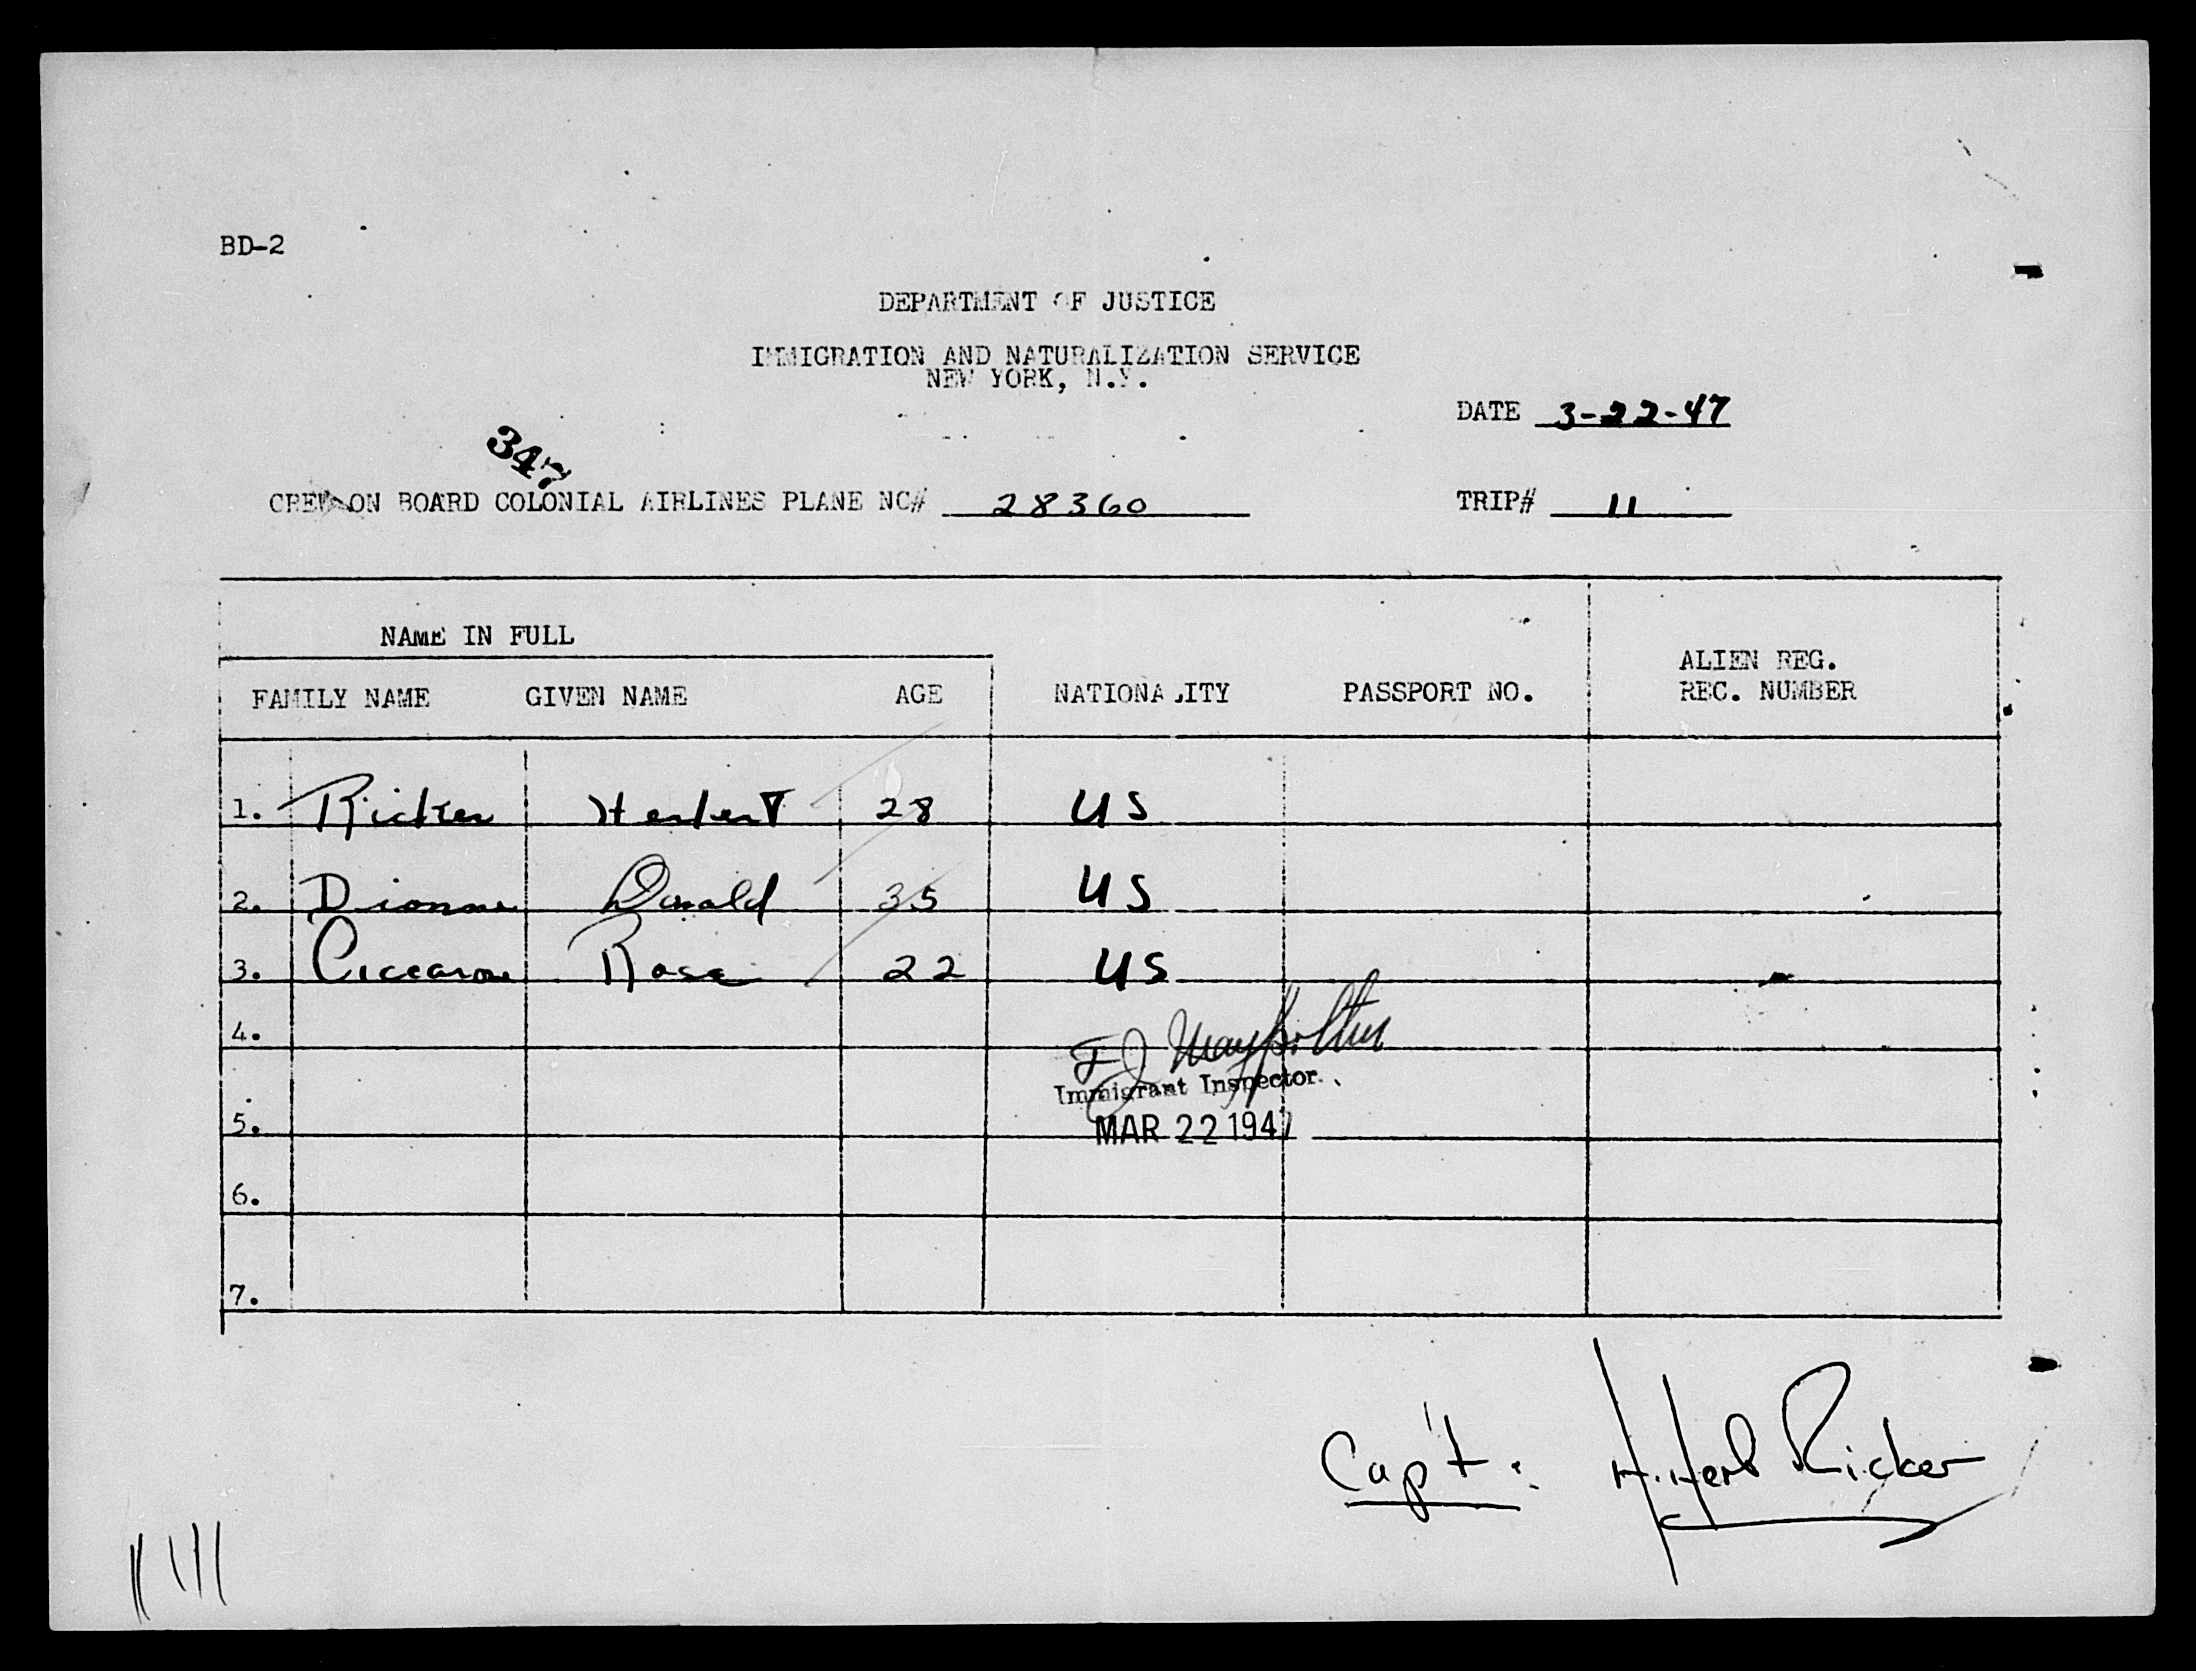 BD-2
DEPARTMENT OF JUSTICE
IMMIGRATION AND NATURALIZATION SERVICE
NEW YORK, N.Y.
DATE 3-22-47
347
CREW ON BOARD COLONIAL AIRLINES PLANE NC# 28360 TRIP# 11
NAME IN FULL
FAMILY NAME GIVEN NAME AGE NATIONALITY PASSPORT NO. ALIEN REG. REC. NUMBER
1. Ricker Herbert 28 US
2. Dionne Donald 35 US
3. Ciccarone Rose 22 US
4.
F J
Immigrant Inspector.
5. MAR 22 1947
6.
7.
Cap't: H. Herb Ricker